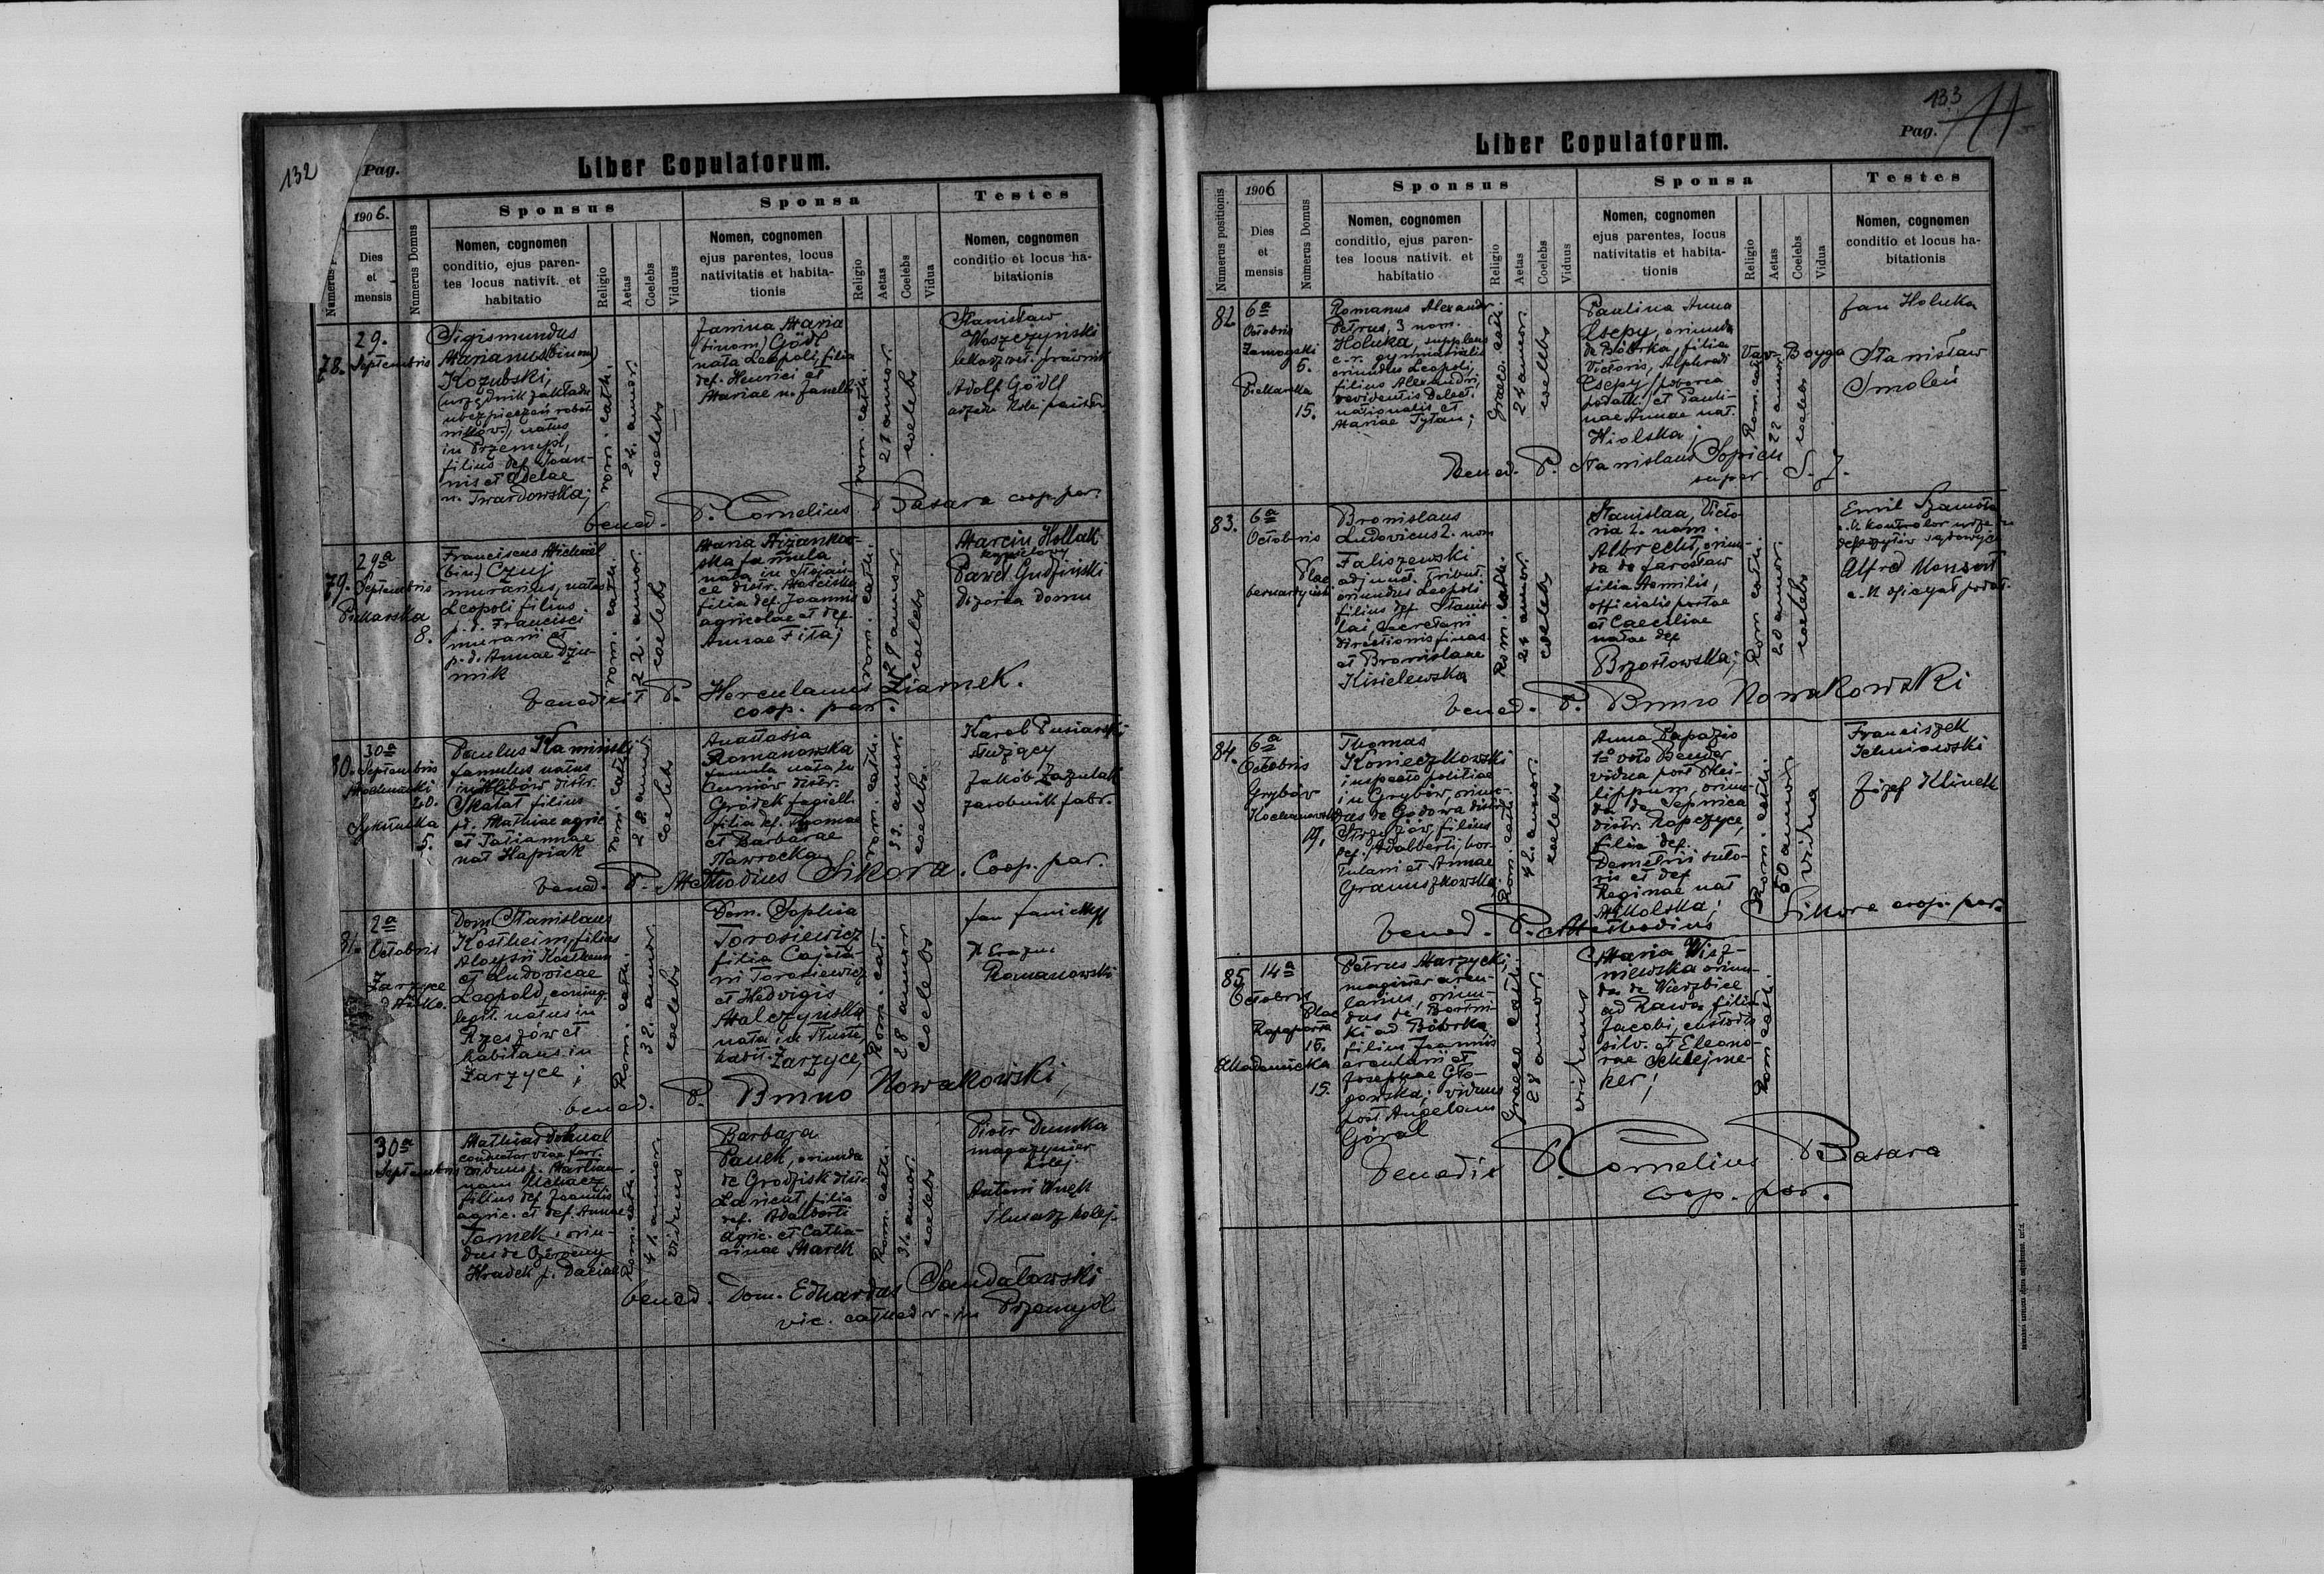 132
Pag.
Liber Copulatorum.
1906.
Sponsus
Sponsa
Testes
Dies
et
mensis
Numerus Domus
Nomen, cognomen
conditio, ejus paren-
tes locus nativit. et
habitatio
Religio
Aetas
Coelebs
Viduus
Nomen, cognomen
ejus parentes, locus
nativitatis et habita-
tionis
Religio
Aetas
Coelebs
Vidua
Nomen, cognomen
conditio et locus ha-
bitationis
78.
29.
Septembris
Sigismundus
Marianus (binom)
Kozubski,
(urzędnik zakładu
ubezpieczeń robot
ników), natus
in Przemyśl,
filius def. Joan-
nis et Adelae
n. Twardowska;
rom. cath.
24. annor.
coelebs
Janina Maria
(binom) Gödl
nata Leopoli, filia
def. Henrici et
Mariae n. Janelli
rom. cath.
21 annor.
coelebs
Stanisław
Waszczyński
Adolf Gödl
bened. P. Cornelius Basara coop. par.
79.
29a
Septembris
Piekarska
8.
Franciscus Michaël
(bin) Czuj
murarius, natus
Leopoli filius
p. d. Francisci
murarii et
p. d. Annae Dziu-
mik
rom. cath.
22. annor.
coelebs
Maria
ska famula
nata in Stojań-
ce distr. Mościska
filia def. Joannis
agricolae et def
Annae Fita;
rom. cath.
29 annor.
coelebs
Marcin Hollak
Paweł Gudziński
dozorca domu
benedixit P. Herculanus
coop. par.
80.
30a
Septembris
Kochanowski
20.
Sykstuska
5.
Paulus Kamiński
famulus natus
distr.
Skałat filius
pd. Mathiae agric
et Tatiannae
nat Hapiak
rom. cath.
28 annor.
coelebs
Anastasia
Romanowska
famula nata in
Cuniów distr.
Gródek Jagiell.
filia def. Thomae
et Barbarae
Nawrocka
rom. cath.
33. annor.
coelebs
Karol Pusiarski
służący
Jakób Zazulak
zarobnik fabr.
bened. P. Methodius Sikora. Coop. par.
81.
2a
Octobris
Zarzyce
Dom Stanislaus
Kostheim, filius
Aloysii Kostheim
et Ludovicae
Leopold, coniug.
legit. natus in
Rzeszów et
habitans in
Zarzyce;
Rom. cath.
32. annor.
coelebs
Dom. Sophia
Torosiewicz
filia Cajeta-
ni Torosiewicz
et Hedvigis
Malczyńska
nata in Tłuste,
habit. Zarzyce,
Rom. cat.
28 annor
coelebs
Romanowski
bened. P. Bruno Nowakowski;
30a
Septembris
Mathias Dohnal
conductor viae ferr.
viduus p. Martian-
nam
filius def Joannis
agric. et def. Annae
oriun-
dus de
Hradek p. Daciae
Rom. cath.
41. annor.
viduus
Barbara
Panek, oriunda
de Grodzisk distr.
Łańcut filia
def. Adalberti
agric. et Catha-
rinae Marek
Rom. cath.
31. annor.
coelebs
Piotr Dumka
magazynier
kolej.
Antoni Wnęk
Ślusarz kolej.
bened. Dom. Eduardus Sandałowski
vic. cathedr. in Przemyśl
133
Pag.
Liber Copulatorum.
Numerus positionis
1906
Sponsus
Sponsa
Testes
Dies
et
mensis
Numerus Domus
Nomen, cognomen
conditio, ejus paren-
tes locus nativit. et
habitatio
Religio
Aetas
Coelebs
Viduus
Nomen, cognomen
ejus parentes, locus
nativitatis et habita-
tionis
Religio
Aetas
Coelebs
Vidua
Nomen, cognomen
conditio et locus ha-
bitationis
82
6a
Octobris
Zamoyski
5.
Piekarska
15.
Romanus Alexandr.
Petrus, 3 nom.
Hołuka, supplens
c.r. gymnasialis
oriundus Leopoli,
filius Alexandri,
revidentis
nationalis et
Mariae Tytan;
Graeco. cath.
24 annor.
coelebs
Paulina Anna
Csepy, oriunda
de Bóbrka, filia
Victoris, Alphredi
Csepy, poborca
podatk. et Pauli-
nae Annae nat.
Hiolska;
Rom. cath.
22 annor.
coelebs
Jan Hołuka
Stanisław
Smoleń
Bened. P. Stanislaus Sopuch
super. S. J.
83.
6a
Octobris
Plac
bernardyński
Bronislaus
Ludovicus 2. nom
Faliszewski
adjunct. tribut.
oriundus Leopoli
filius def Stanis-
lai, Secretarii
directionis finas.
et Bronislaae
Kisielewska
Rom. cath.
24 annor.
coelebs
Stanislaa, Victo-
ria 2. nom.
Albrecht, oriun-
da de Jarosław
filia Aemilii,
officialis postae
et Caeciliae
natae def
Brzostowska;
Rom cath.
20 annor.
coelebs
Emil Szamota
c. k kontrolor urzę
depozytów sądowych
Alfred
c. k oficyał podat.
bened. P. Bruno Nowakowski
84.
6a
Octobris
Grybów
Kochanowski
17.
Thomas
Konieczkowski
inspecto politiae
in Grybów, oriun-
dus de Godowa distr
Strzyżów, filius
def. Adalberti, hor-
tulani et Annae
Gramuszkowska.
Rom. cath.
42. annor.
coelebs
Anna Papazio
1o voto Bender
vidua post Phi-
lippum, oriun-
da de Sepnica
distr. Ropczyce,
filia def.
Demetrii suto-
ris et def
Reginae nat
Mikolska;
Rom. cath.
50 annor.
vidua
Franciszek
Józef Klimek
bened. P. Methodius Sikora coop. par.
85.
14a
Octobris
Plac
Rapaporta
15.
Akademicka
15.
Petrus Marzycki,
magister aren-
larius, oriun-
dus de
ki ad Bóbrka
filius Joannis
arcularii et
Josephae Gło-
gowska; viduus
post Angelam
Góral
Graeco cath.
28 annor.
viduus
Maria Wisz-
niewska oriun-
da de Wierzbice
ad Rawa, filia
Jacobi, custodis
silv. et Eleono-
rae Schlejme-
ker;
Rom cath.
benedix P. Cornelius Basara
coop. par.